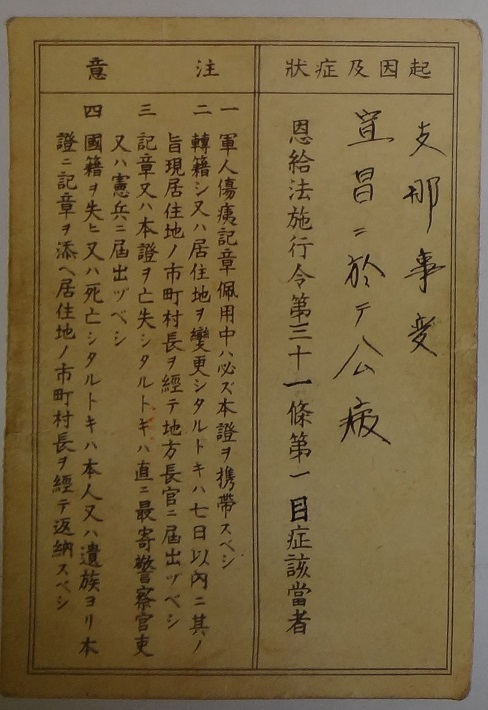 起因及症状
支那事変
宜昌ニ於テ公病
恩給法施行令第三十一條第一目症該當者
注意
一 軍人傷痍記章佩用中ハ必ズ本證ヲ携帶スベシ
二 轉籍シ又ハ居住地ヲ變更シタルトキハ七日以內ニ其ノ
旨現居住地ノ市町村長ヲ經テ地方長官ニ屆出ヅベシ
三 記章又ハ本證ヲ亡失シタルトキハ直ニ最寄警察官吏
又ハ憲兵ニ屆出ヅベシ
四 國籍ヲ失ヒ又ハ死亡シタルトキハ本人又ハ遺族ヨリ本
證ニ記章ヲ添ヘ居住地ノ市町村長ヲ經テ返納スベシ